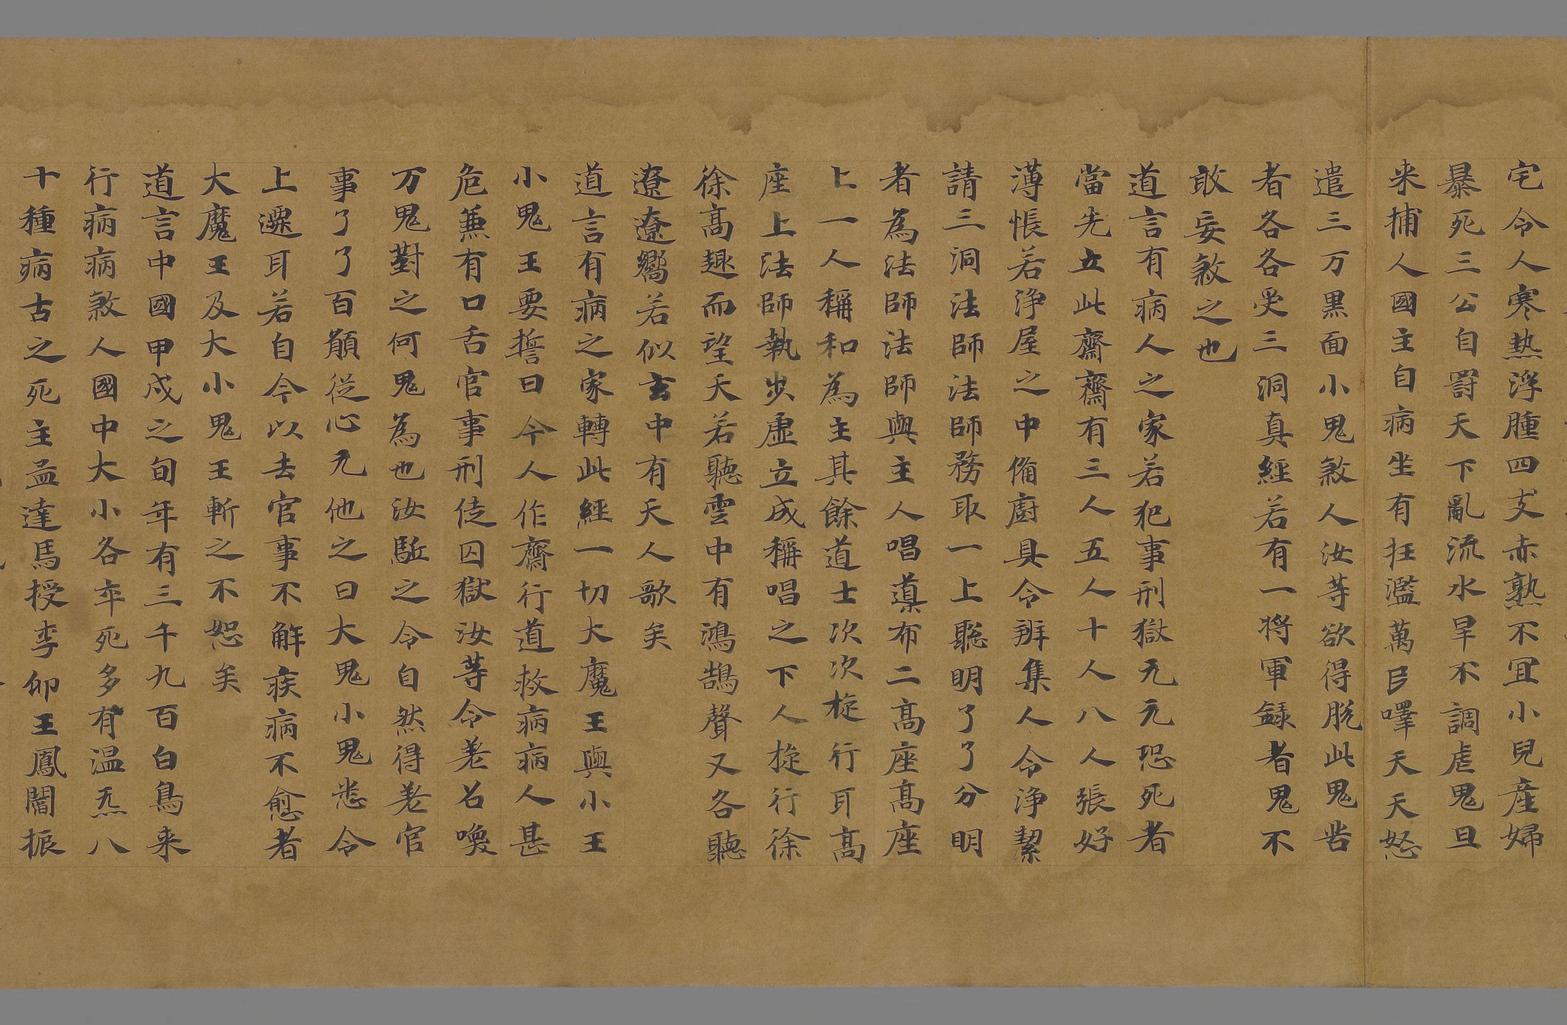 宅令人寒熱浮腫四支赤熟不冝小兒産婦
暴死三公自罸天下亂流水旱不調虐鬼旦
来捕人國主自病坐有抂濫萬民嘾天天怒
遣三万黒面小鬼煞人汝等欲得脫此鬼㫮
者各各受三洞真經若有一將軍録者鬼不
敢妄煞之也
道言有病人之家若犯事刑獄元元恐死者
當先立此齋齋有三人五人十人八人張好
薄悵若淨屋之中偹廚具令辨集人令淨絜
請三洞法師法師務取一上聡明了了分明
者為法師法師與主人唱導布二髙座髙座
上一人稱和為主其餘道士次次㨁行耳髙
座上法師執步虛立成稱唱之下人㨁行徐
徐髙趣而望天若聽雲中有鴻鵠聲又各聽
遼遼嚮若似玄中有天人歌矣
道言有病之家轉此經一切大魔王與小王
小鬼王要誓曰令人作齋行道救病病人甚
危兼有口舌官事刑徒囚獄汝等令差名喚
万鬼對之何鬼為也汝駈之令自然得差官
事了了百願從心无他之曰大鬼小鬼悉令
上遷耳若自今以去官事不解疾病不愈者
大魔王及大小鬼王斬之不恕矣
道言中國甲戍之旬年有三千九百白鳥来
行病病煞人國中大小各卒死多有温炁八
十種病古之死主孟達馬授李仰王鳳闇振